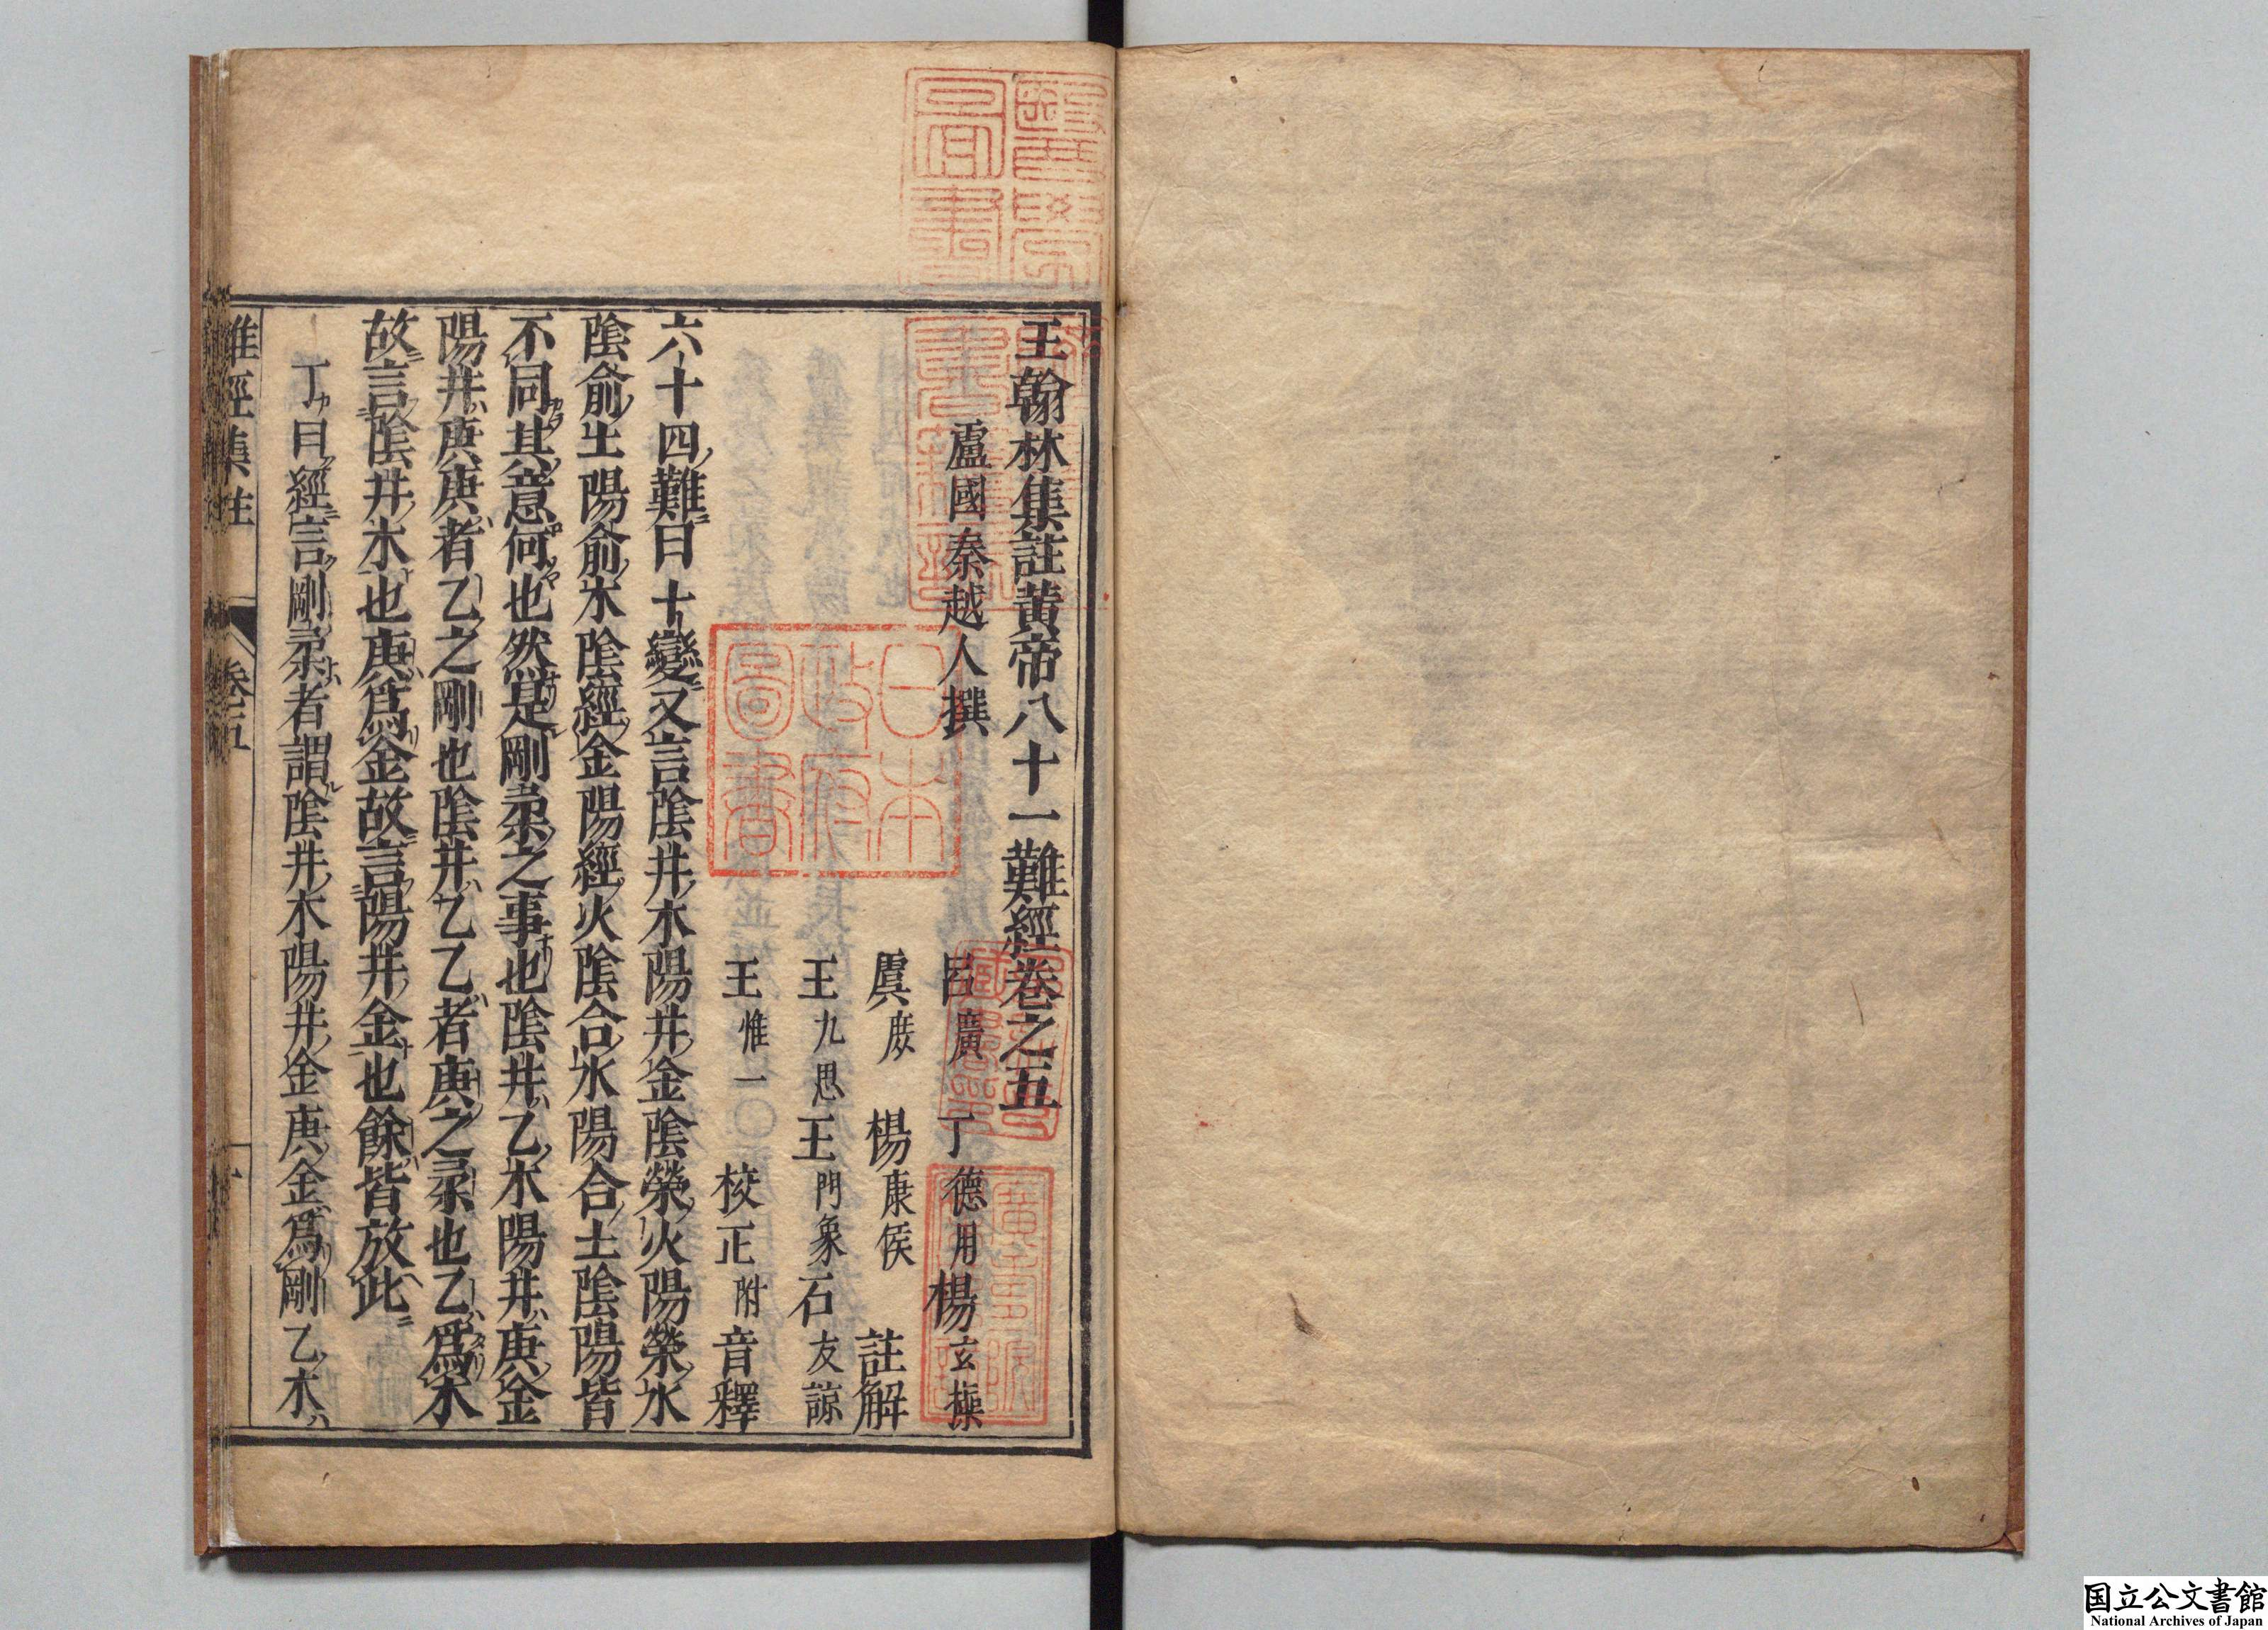 王翰林集註黃帝八十一難經卷之五
盧國秦越人撰
呂廣 丁德用 楊玄操
虞庶 楊康侯 註解
王九思 王門象 石友諒
王惟一〇校正附音釋
六十四難曰十變又言陰井木陽井金陰滎火陽滎水
陰俞土陽俞木陰經金陽經火陰合水陽合土陰陽皆
不同其意何也然是剛柔之事也陰井乙木陽井庚金
陽井庚庚者乙之剛也陰井乙乙者庚之柔也乙爲木
故言陰井木也庚爲金故言陽井金也餘皆放此
丁曰經言剛柔者謂陰井木陽井金庚金爲剛乙木
難經集註 卷五
日本政府圖書
醫學圖書
国立公文書館
National Archives of Japan